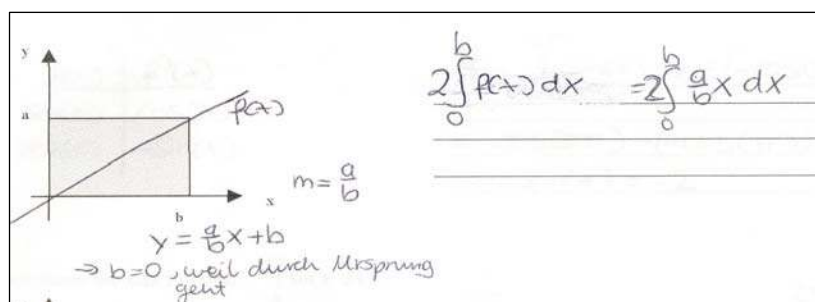 y
a
f(x)
b
x
m = a/b
y = a/b x + b
⇒ b = 0, weil durch Ursprung
geht
2∫₀ᵇ f(x) dx = 2∫₀ᵇ a/b x dx